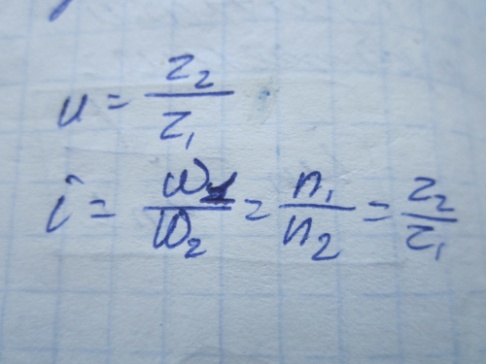 u = z₂/z₁
i = ω₁/ω₂ = n₁/n₂ = z₂/z₁